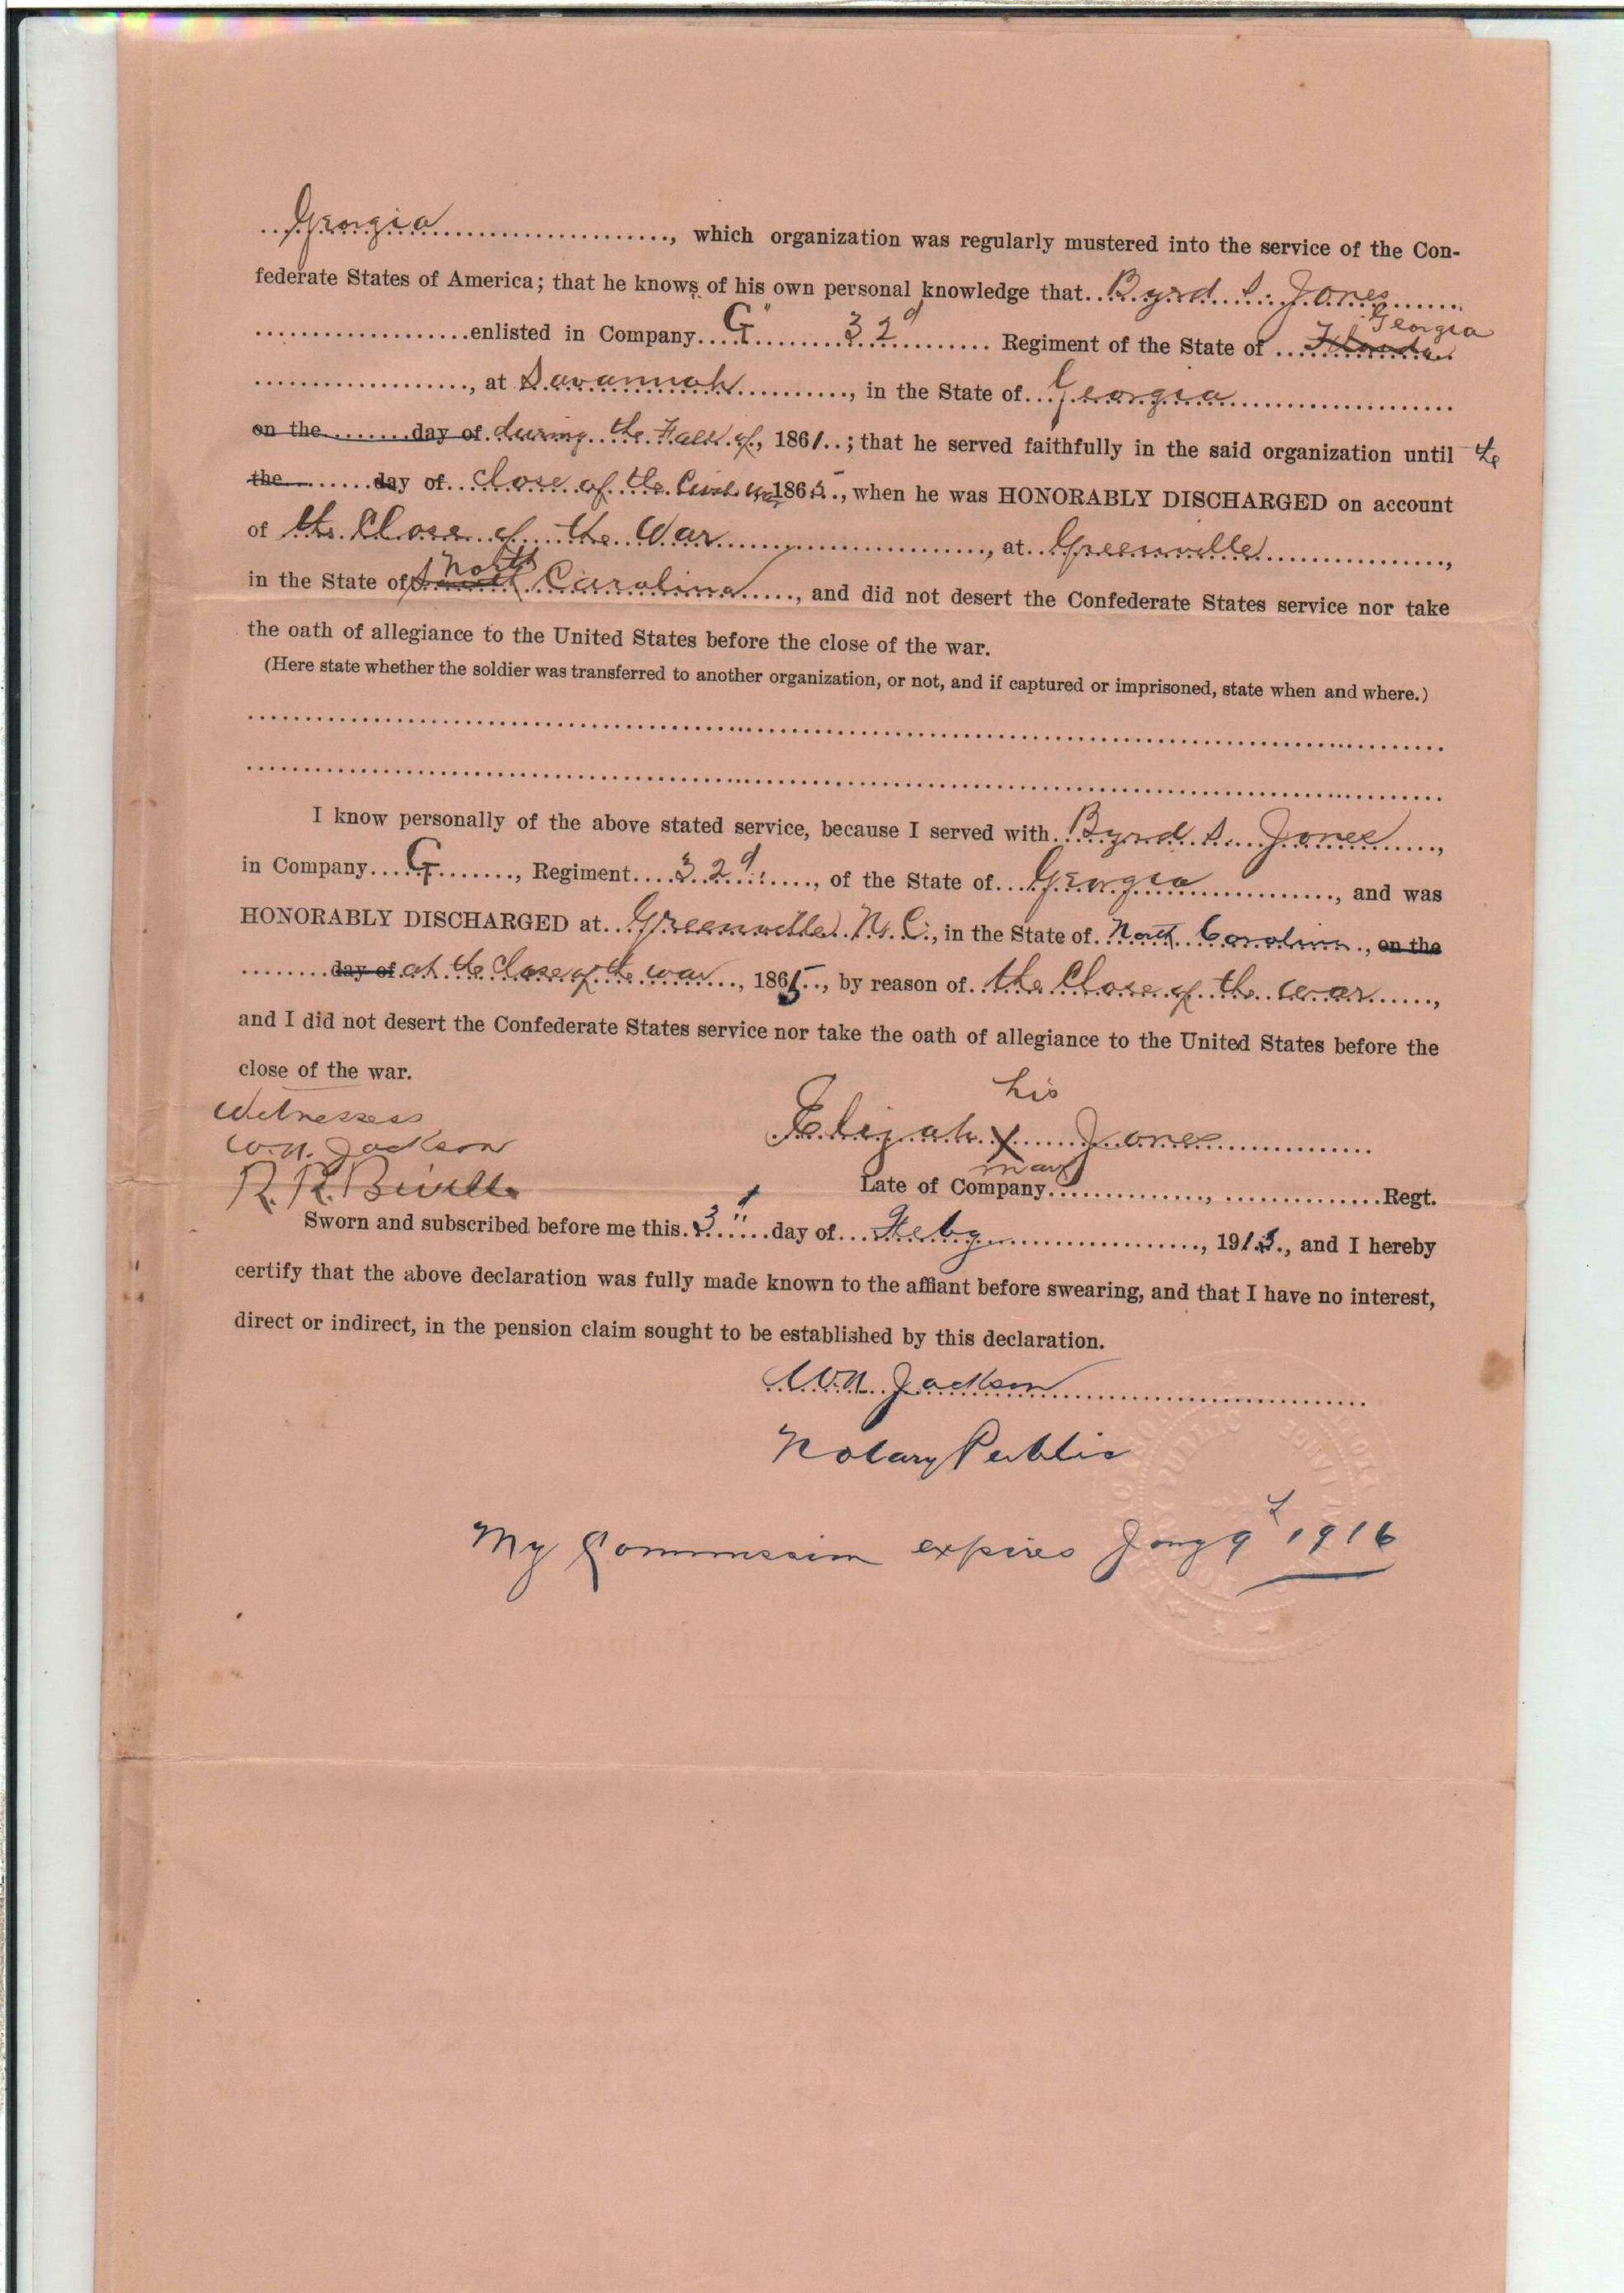 Georgia, which organization was regularly mustered into the service of the Con-
federate States of America; that he knows of his own personal knowledge that Byrd S. Jones
Georgia
enlisted in Company G 32d Regiment of the State of Florida
, at Savannah, in the State of Georgia
on the day of during the Fall of, 1861; that he served faithfully in the said organization until the
the day of close of the Civil War 1865, when he was HONORABLY DISCHARGED on account
of the Close of the War, at Greenville,
North
in the State of South Carolina, and did not desert the Confederate States service nor take
the oath of allegiance to the United States before the close of the war.
(Here state whether the soldier was transferred to another organization, or not, and if captured or imprisoned, state when and where.)
I know personally of the above stated service, because I served with Byrd S. Jones,
in Company G, Regiment 32d, of the State of Georgia, and was
HONORABLY DISCHARGED at Greenville N. C., in the State of North Carolina, on the
day of at the Close of the war, 1865, by reason of the Close of the war,
and I did not desert the Confederate States service nor take the oath of allegiance to the United States before the
close of the war.
his
Witnesses
Elijah X Jones
W. N. Jackson
mark
R. R.
Late of Company , Regt.
Sworn and subscribed before me this 3d day of Feby, 1913, and I hereby
certify that the above declaration was fully made known to the affiant before swearing, and that I have no interest,
direct or indirect, in the pension claim sought to be established by this declaration.
W. N. Jackson
Notary Public
My Commission expires Jany 9 1916